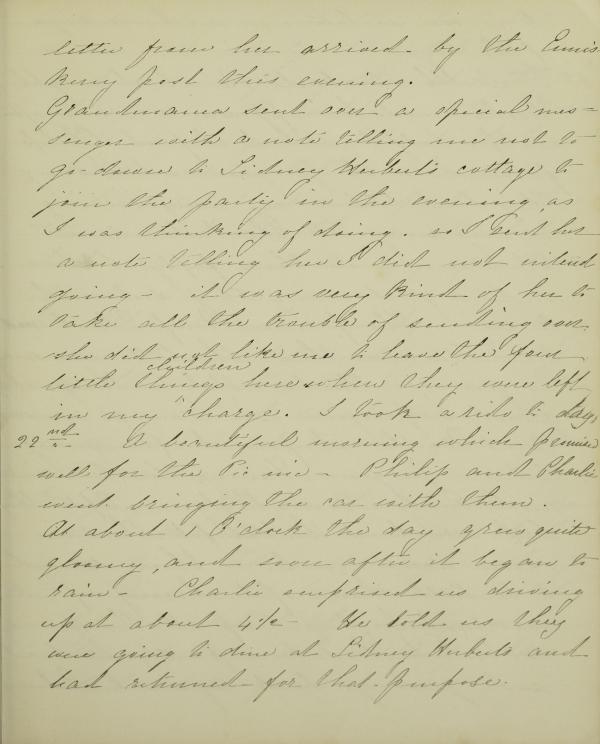 letter from her arrived by the Ennis-
kerry post this evening.
Grandmama sent over a special mes-
senger with a note telling me not to
go down to Sidney Herbert's cottage to
join the party in the evening, as
I was thinking of doing. so I sent her
a note telling her I did not intend
going - it was very kind of her to
take all the trouble of sending over
she did not like me to leave the four
children
little things here when they were left
in my charge. I took a ride to day.
22nd- A beautiful morning which promised
well for the Pic nic - Philip and Charlie
went bringing the car with them.
At about 1 O'clock the day grew quite
gloomy, and soon after it began to
rain - Charlie surprised us driving
up at about 4½ - He told us they
were going to dine at Sidney Herberts and
had returned for that purpose.